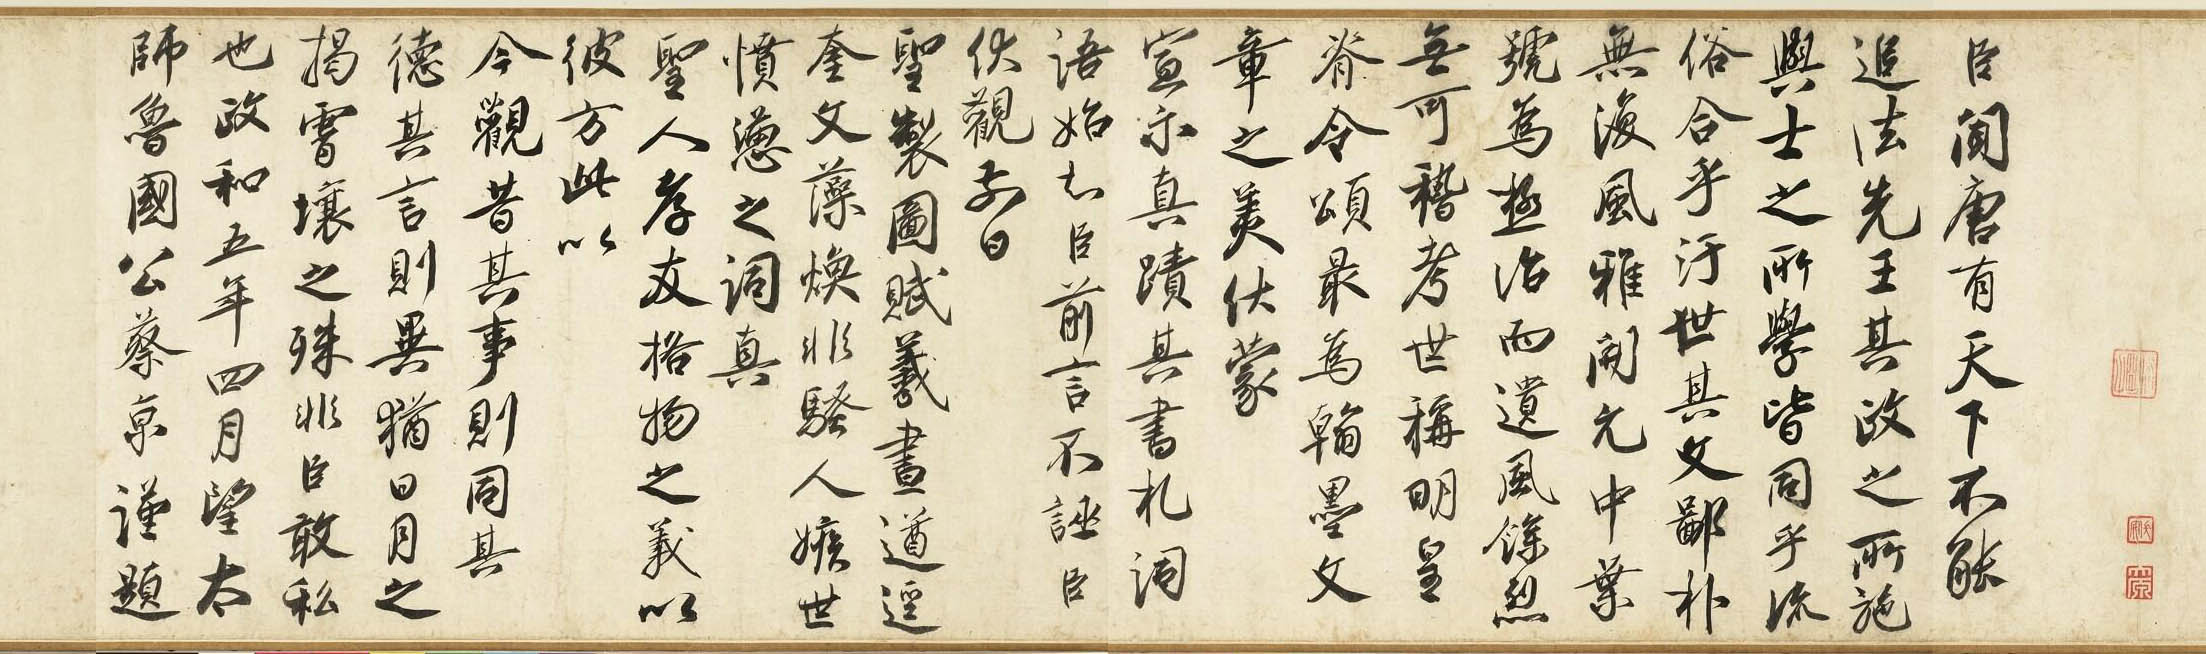 臣聞唐有天下不能
追法先王其政之所施
與士之所學皆同乎流
俗合乎汙世其文鄙朴
無復風雅開元中葉
號為極治而遺風餘烈
無可稽考世稱明皇
脊令頌最為翰墨文
章之美伏蒙
宣示真蹟其書札詞
語始知臣前言不誣臣
伏觀前日
聖製圖賦羲畫遒逕
奎文藻煥非騷人嫉世
憤懣之詞真
聖人孝友格物之義以
彼方此以
今觀昔其事則同其
德其言則異猶日月之
揭霄壤之殊非臣敢私
也政和五年四月望太
師魯國公蔡京謹題